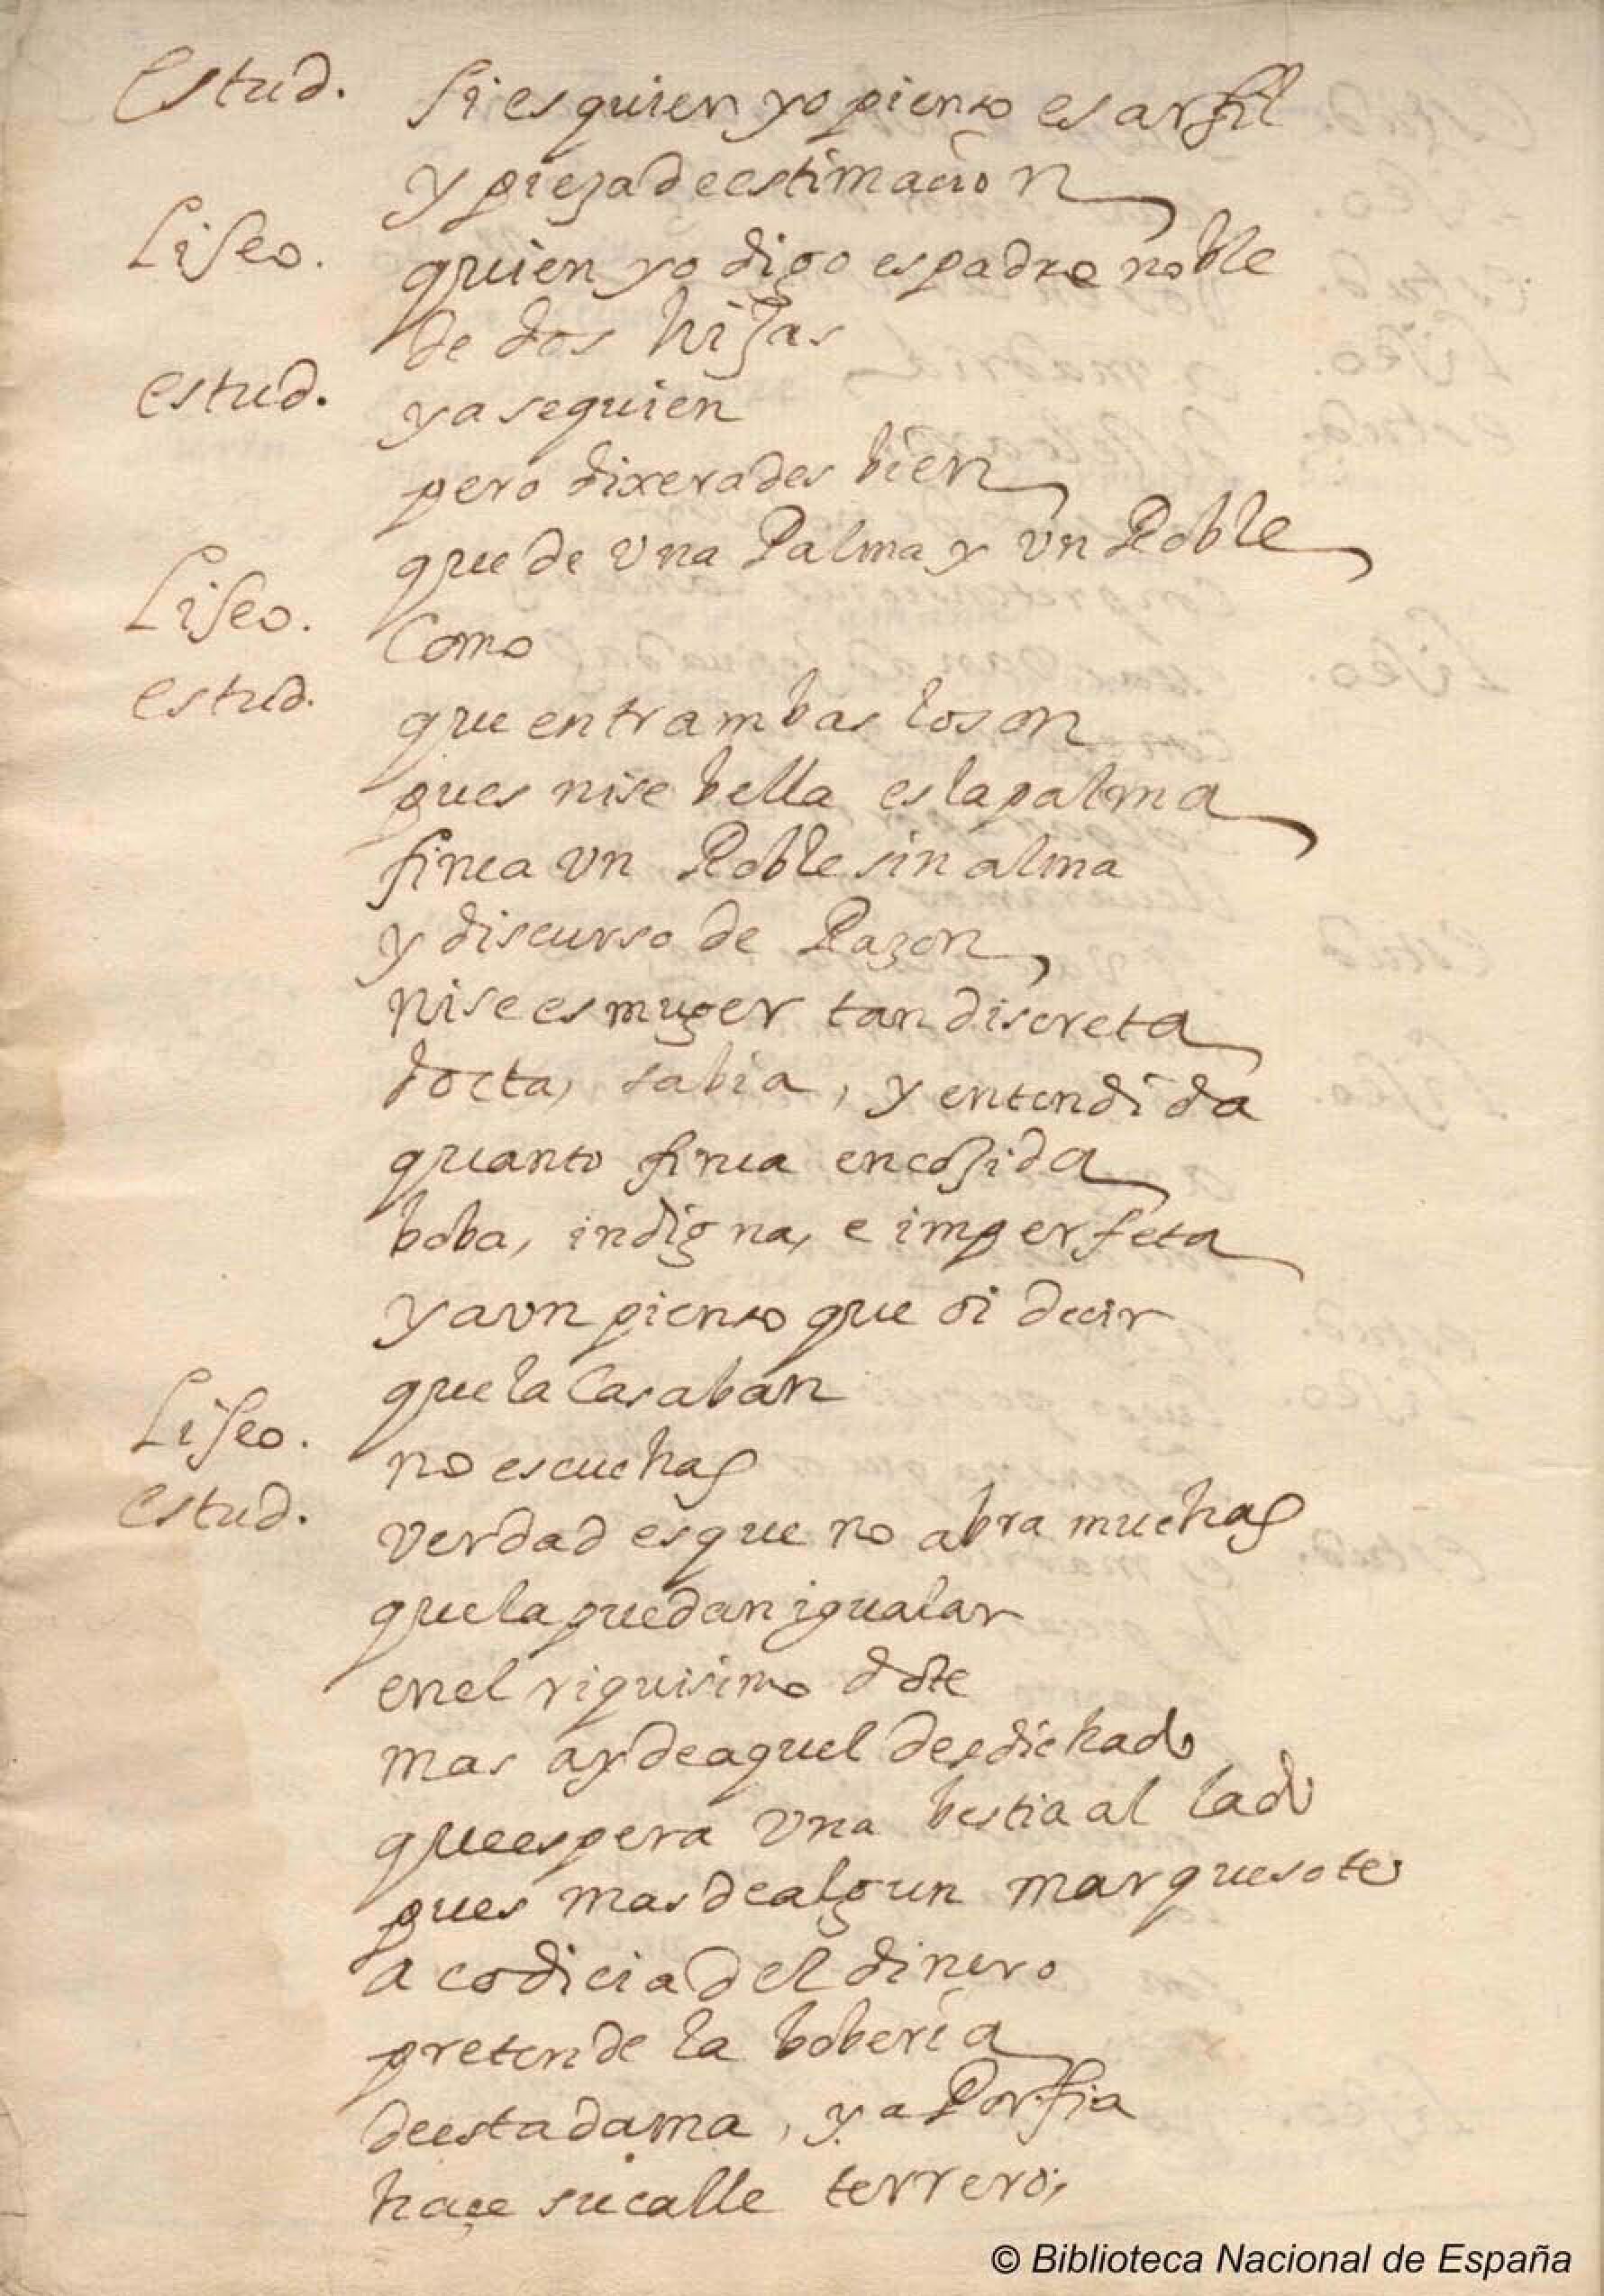 Estud. Si es quien yo pienso es arfil
y pieza de estimacion
Liseo. quien yo digo es padre noble
de dos hijas
estud. ya se quien
pero dixerades bien
que de vna Palma y vn Roble
Liseo. Como
estud. que entrambas lo son
pues nise bella es la palma
finea vn Roble sin alma
y discurso de Razon
nise es muger tan discreta
docta, sabia, y entendida
quanto finea encojida
boba, indigna, e imperfeta
y avn pienso que oi decir
que la Casaban
Liseo. no escuchas
estud. verdad es que no abra muchas
que la puedan igualar
en el riquisimo dote
mas ay de aquel desdichado
que espera vna bestia al lado
pues mas de algun marquesote
a codicia del dinero
pretende la boberia
de esta dama, y a Porfia
haçe su calle terrero,
© Biblioteca Nacional de España